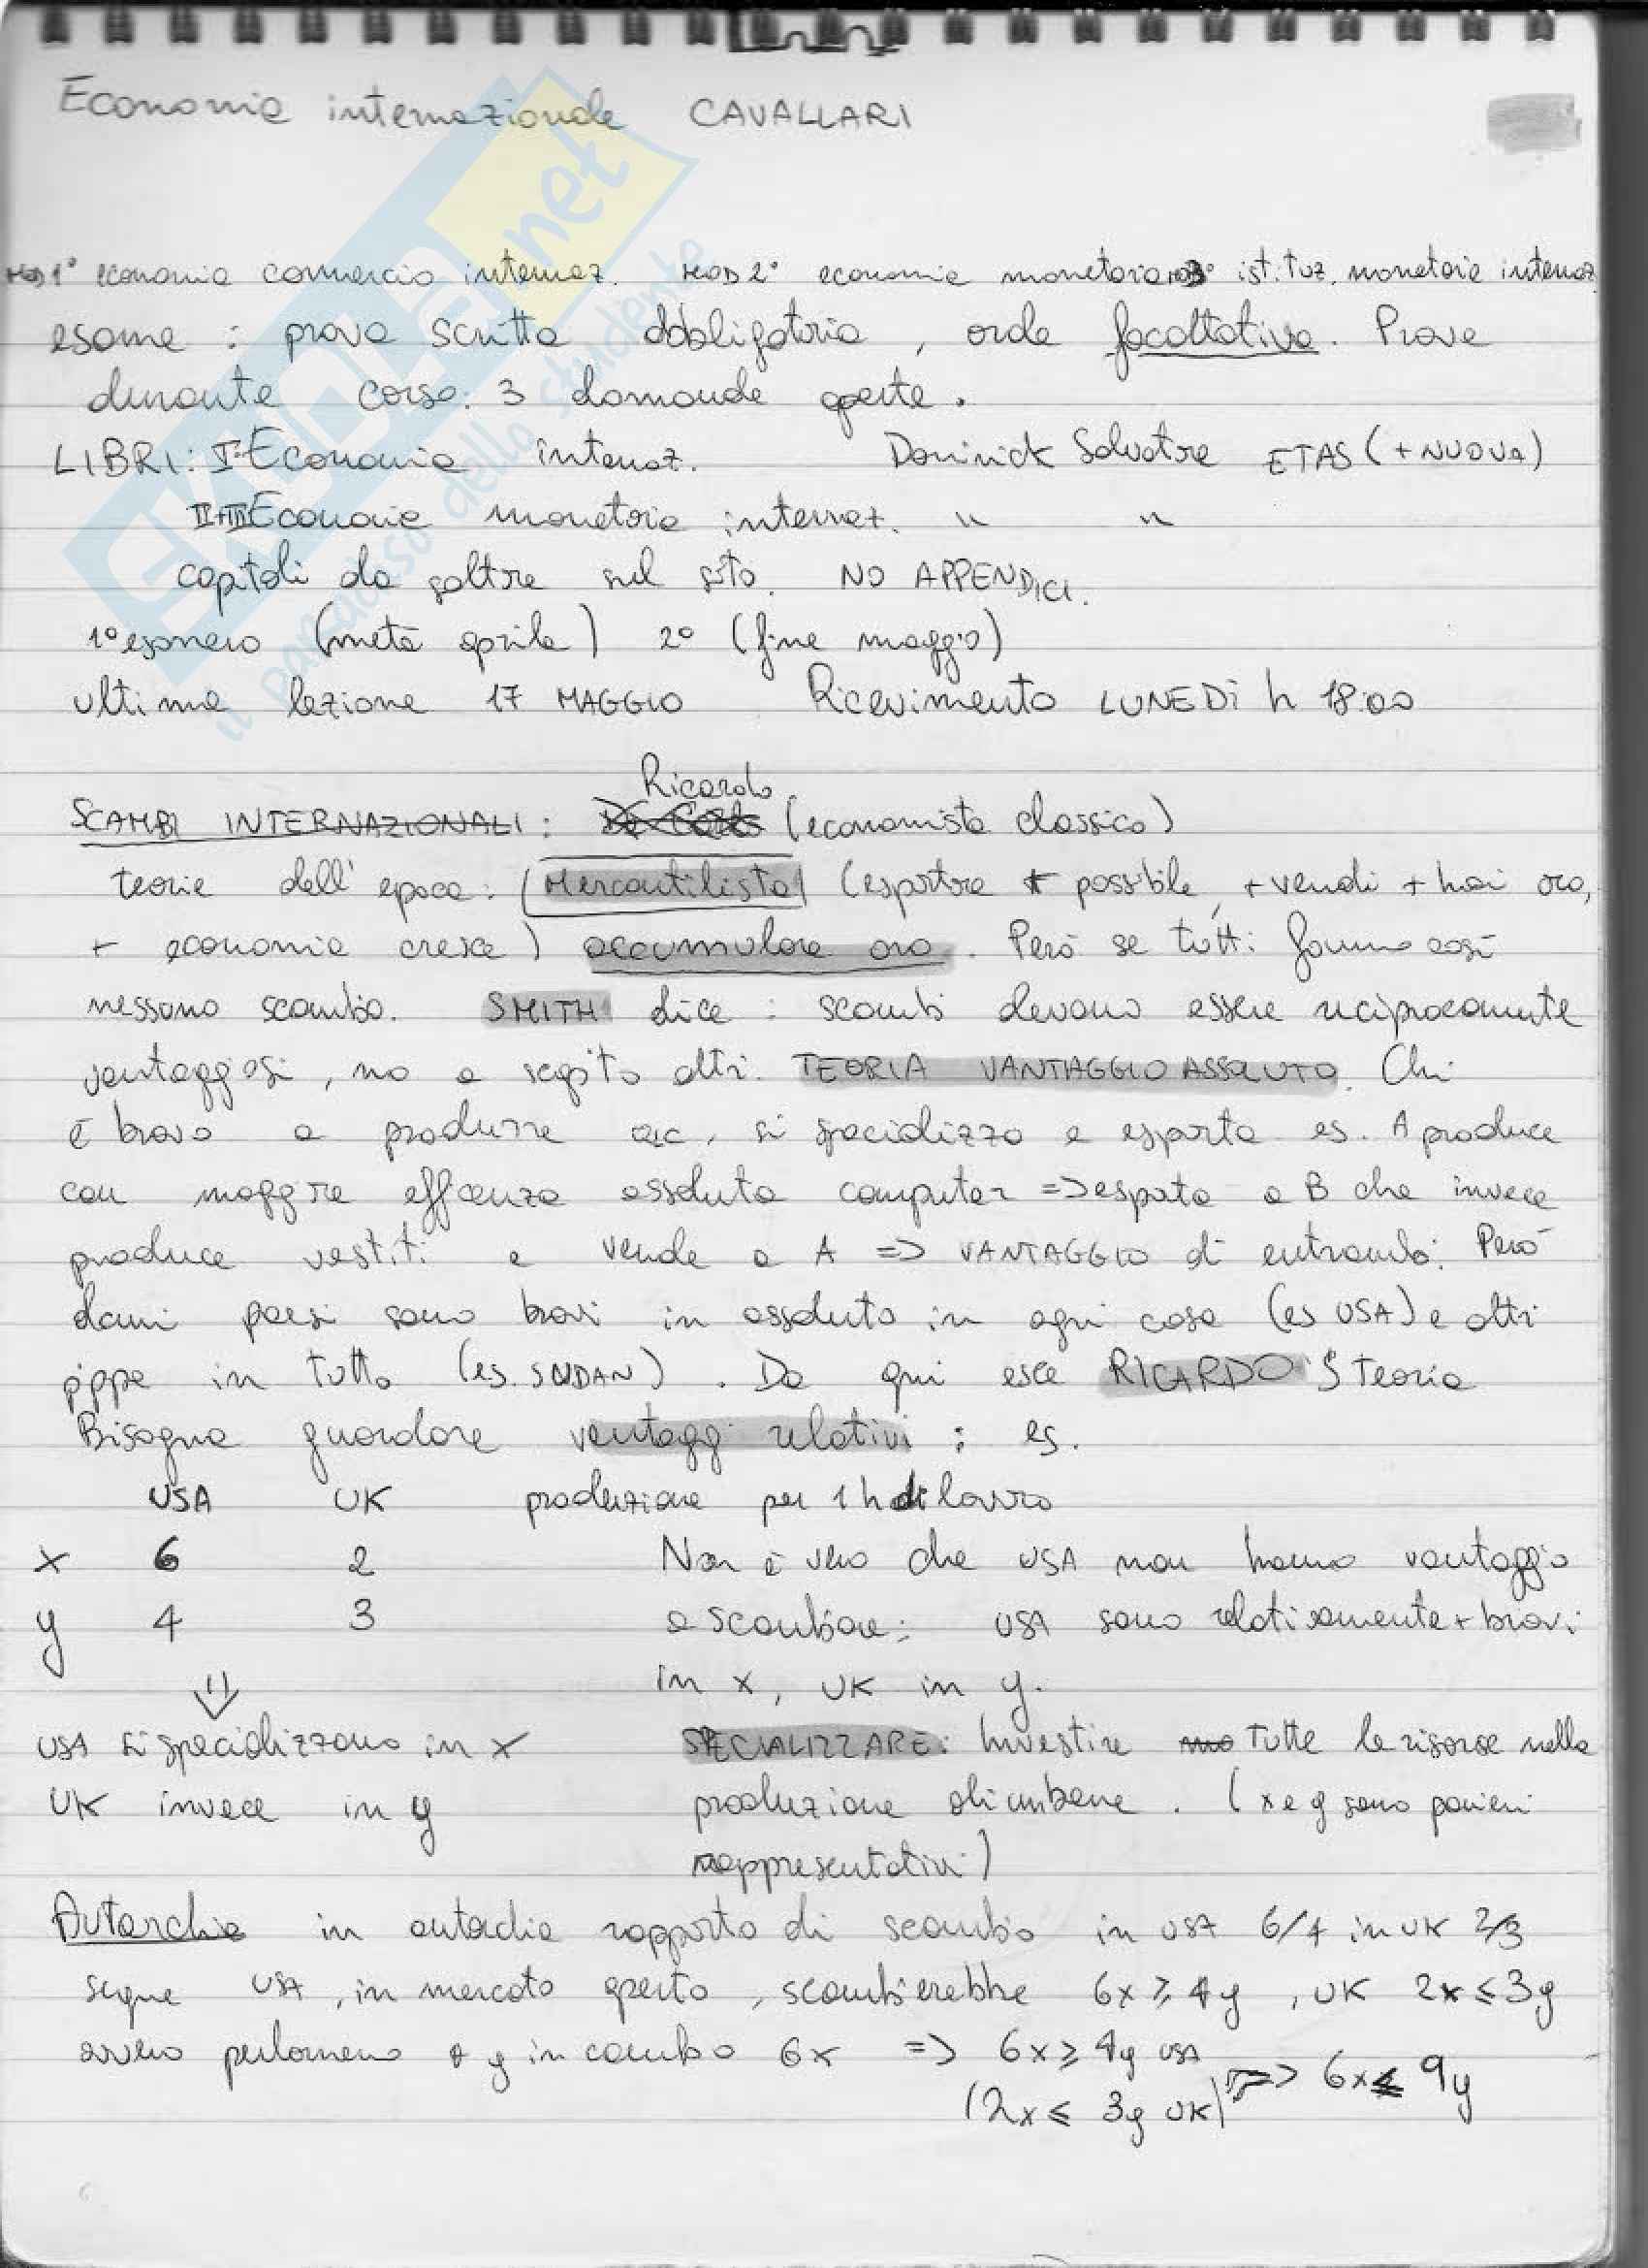 Economia internazionale CAVALLARI
MOD 1° economia commercio internaz. MOD 2° economia monetaria MOD 3° istituz. monetarie internaz.
esame : prova scritta obbligatoria , orale facoltativa. Prove
durante corso: 3 domande aperte.
LIBRI: I Economia internaz. Dominick Salvatore ETAS (+NUOVA)
II+III Economia monetaria internaz. " "
capitoli da saltare sul sito. NO APPENDICI.
1° esonero (metà aprile) 2° (fine maggio)
ultima lezione 17 MAGGIO Ricevimento LUNEDÌ h 18:00
Ricardo
SCAMBI INTERNAZIONALI: (economista classico)
teorie dell'epoca: (Mercantilista) (esportare + possibile, + vendi + hai oro,
+ economia cresce) accumulare oro. Però se tutti fanno così
nessuno scambio. SMITH dice : scambi devono essere reciprocamente
vantaggiosi, no a scapito altri. TEORIA VANTAGGIO ASSOLUTO. Chi
è bravo a produrre qlc, si specializza e esporta es. A produce
con maggire efficenza assoluta computer => esporta a B che invece
produce vestiti e vende a A => VANTAGGIO di entrambi. Però
alcuni paesi sono bravi in assoluto in ogni cosa (es USA) e altri
pippe in tutto (es. SUDAN). Da qui esce RICARDO'S Teoria
Bisogna guardare vantaggi relativi : es.
USA UK produzione per 1 h di lavoro
x 6 2 Non è vero che USA non hanno vantaggio
y 4 3 a scambiare: USA sono relativamente + bravi
in x, UK in y.
USA si specializzano in x SPECIALIZZARE: Investire tutte le risorse nella
UK invece in y produzione di un bene. (x e y sono panieri
rappresentativi)
Autarchia in autarchia rapporto di scambio in USA 6/4 in UK 2/3
segue USA, in mercato aperto, scambierebbe 6x ⩾ 4y , UK 2x ⩽ 3y
ovvero perlomeno 4 y in cambio 6x => 6x ⩾ 4y USA
(2x ⩽ 3y UK) => 6x ⩽ 9y